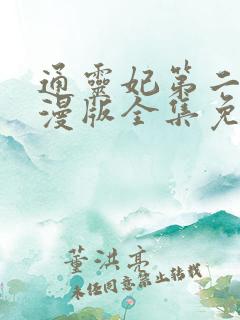 通靈妃第二
漫版全集免
董洪亮
未任同意禁止转载